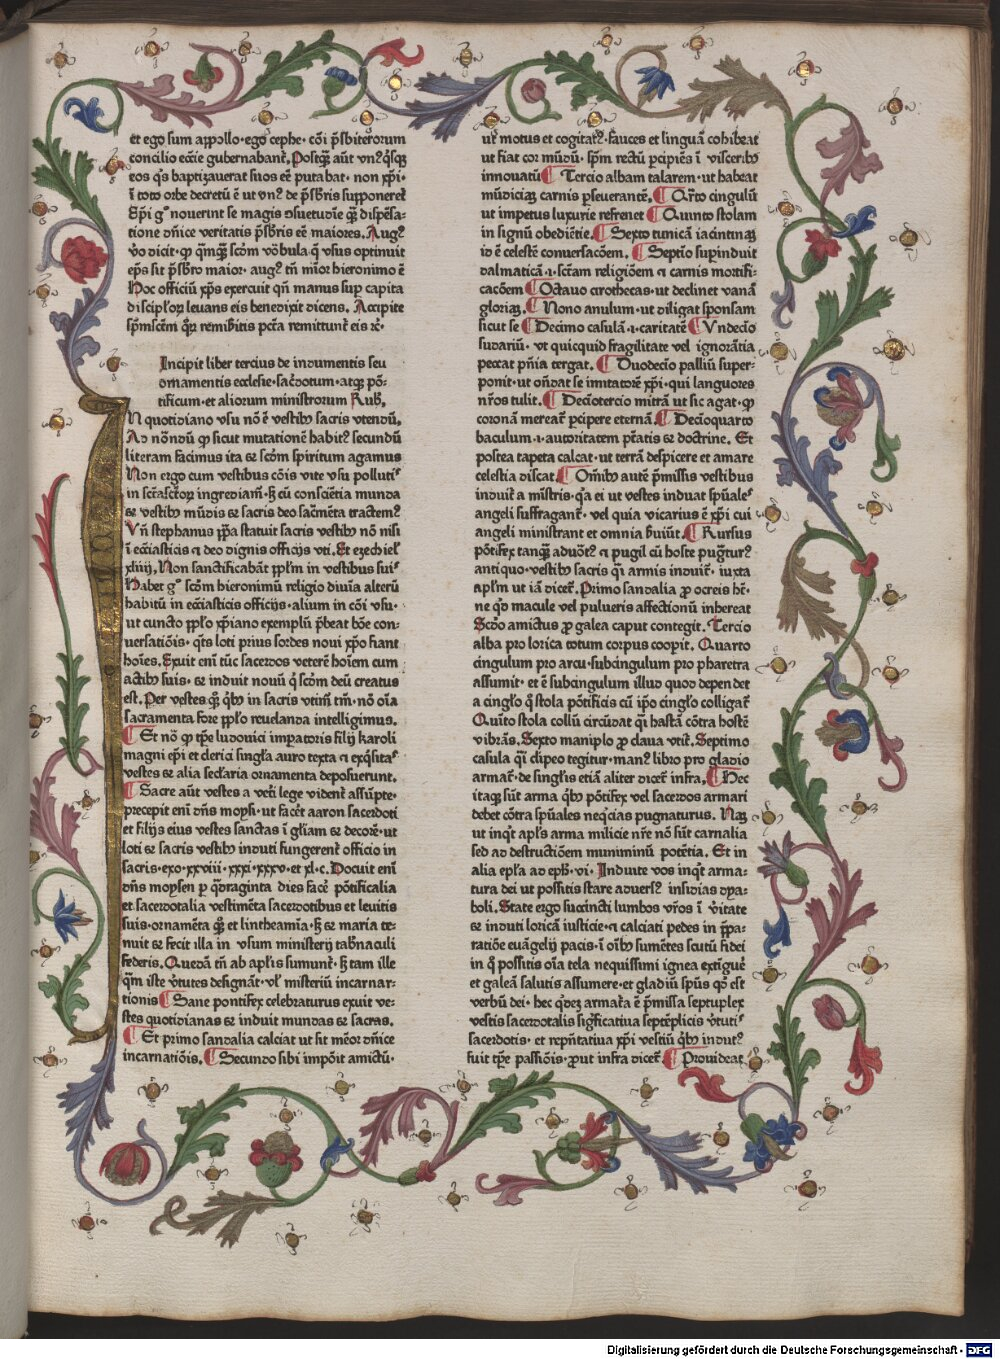 et ego sum appollo · ego cephe · cōi p̄sbiterorum
concilio ecc̄ie gubernabant᷑. Postq̄ꝫ aūt vn᷒q᷒sqꝫ
eos q᷒s baptizauerat suos eē putabat · non xp̄i ·
ī toto orbe decretū ē ut vn᷒ de p̄sbr̄is supponeret᷑
Ep̄i gͦ nouerint se magis ꝯsuetudīe q̄ꝫ dispēsa-
tione dn̄ice veritatis p̄sbr̄is eē maiores. Aug᷒
v̊o dicit · ꝙ q̄mq̄ꝫ scd̄m vo̅bula · q̄ vsus optinuit
ep̄s sit p̄sbr̄o maior · aug᷒ tn̄ mīor hieronimo ē
Hoc officiū xp̄s exercuit qn̄ manus sup capita
discipl'oꝝ leuans eis benedixit dicens. Accipite
sp̄msct̄m q̊ꝝ remis̄itis pct̄a remittunt᷑ eis ⁊c̄ ·
Incipit liber tercius de indumentis seu
ornamentis ecclesie · sac̄dotum · atqꝫ pō-
tificum · et aliorum ministrorum Rub̄.
IN quotidiano vsu nō ē vestib᷒ sacris vtendū.
Ad nō̄ndū ꝙ sicut mutationē habit᷒ secundū
literam facimus ita ⁊ scd̄m spiritum agamus
Non ergo cum vestibus cōis vite vsu polluti᷒
in sct̄asct̄oꝝ ingrediam᷑ · ꝫ cū consciētia munda
⁊ vestib᷒ mūdis ⁊ sacris deo sac̄mēta tractem᷒
Vn̄ stephanus pp̄a statuit sacris vestib᷒ nō nisi
ī ecc̄iasticis ⁊ deo dignis officijs vti. Et ezechiel'
xliiij. Non sanctificabāt ppl̄m in vestibus sui᷒
Habet gͦ scd̄m hieronimū religio diuīa alterū
habitū in ecc̄iasticis officijs · alium in cōi vsu ·
ut cuncto ppl̄o xp̄iano exemplū p̄beat bōe con-
uersatiōis · q̄ts loti prius sordes noui xp̄o fiant
hoīes. Exuit enī tūc sacerdos veterē hoīem cum
actib᷒ suis · ⁊ induit nouū q̄ scd̄m deū creatus
est. Per vestes q̄ꝫ q᷒b᷒ in sacris vtim᷑ tm̄ · nō oīa
sacramenta fore ppl̄o reuelanda intelligimus.
Et nō ꝙ tp̄e ludouici imp̄atoris filij karoli
magni ep̄i et clerici singl̄a auro texta ⁊ exq̄sita᷒
vestes ⁊ alia sec̄laria ornamenta deposuerunt.
Sacre aūt vestes a veti lege vident᷑ assūpte ·
precepit enī dn̄s moysi · ut facēt aaron sacerdoti
et filijs eius vestes sanctas ī gl̄iam ⁊ decorē · ut
loti ⁊ sacris vestib᷒ induti fungerent᷑ officio in
sacris · exo · xxviii · xxxi · xxxv · et xl · c. Docuit enī
dn̄s moysen p q̄draginta dies facē pōtificalia
et sacerdotalia vestimēta sacerdotibus et leuitis
suis · ornamēta q̄ꝫ et lintheamīa · ꝫ ⁊ maria te-
nuit ⁊ fecit illa in vsum ministerij tab̄naculi
federis. Quedā tn̄ ab apl̄is sumunt᷑ · ꝫ tam ille
q̄m iste v̄tutes designāt · vl' misteriū incarnar-
tionis Sane pontifex celebraturus exuit ve-
stes quotidianas ⁊ induit mundas ⁊ sacras.
Et primo sandalia calciat ut sit mēor dn̄ice
incarnatiōis. Secundo sibi impōit amictū ·
ut᷑ motus et cogitat᷒ · fauces et linguā cohibeat
ut fiat cor mūdū · sp̄m rectū pcipiēs ī visceribꝫ
innouatū Tercio albam talarem · ut habeat
mūdiciaꝫ carnis pseuerantē. Q̄rto cingulū
ut impetus luxurie refrenet Quinto stolam
in signū obediētie. Sexto tunicā iacintinaꝫ
id ē celestē conuersac̄oem. Septīo supinduit
dalmaticā · i · sct̄am religiōem ⁊ carnis mortifi-
cac̄oem Octauo cirothecas · ut declinet vanā
gloriaꝫ. Nono anulum · ut diligat sponsam
sicut se Decimo casulā · i · caritatē Vndecīo
sudariū · vt quicquid fragilitate vel ignorātia
peccat pn̄ia tergat. Duodecīo palliū super-
ponit · ut on̄dat se imitatorē xp̄i · qui languores
nr̄os tulit. Decīotercio mitrā ut sic agat · ꝙ
coronā mereat᷑ pcipere eternā. Decīoquarto
baculum · i · autoritatem p̄tatis ⁊ doctrine. Et
postea tapeta calcat · ut terrā despicere et amare
celestia discat. Om̄ib᷒ autē p̄missis vestibus
induit᷑ a mīstris · q̄a ei ut vestes induat sp̄uale᷒
angeli suffragant᷑ · vel quia vicarius ē xp̄i cui
angeli ministrant et omnia s̄uiūt. Rursus
pōtifex tanq̄ꝫ aduōt᷑ ⁊ pugil cū hoste pug̊tur᷒
antiquo · vestib᷒ sacris q̄i armis induit᷑ · iuxta
apl̄m ut iā dicet᷑. Primo sandalia ꝓ ocreis hꝫ ·
ne q̊ macule vel pulueris affectionū inhereat
Scd̊o amictus ꝓ galea caput contegit. Tercio
alba pro lorica totum corpus coopit. Quarto
cingulum pro arcu · subcingulum pro pharetra
assumit · et ē subcingulum illud quod dependet
a cingl̊o q̊ stola pōtificis cū ip̄o cingl̊o colligat᷑
Quīto stola collū circūdat q̄i hastā cōtra hostē
vibrās. Sexto maniplo ꝓ claua vtit᷑. Septimo
casula q̄i clipeo tegitur · man᷒ libro pro gladio
armat᷑ · de singl̄is etiā aliter dicet᷑ infra. Hec
itaqꝫ sūt arma q᷒b᷒ pōtifex vel sacerdos armari
debet cōtra sp̄uales neq̄cias pugnaturus. Naꝫ
ut inq᷑t apl̄s arma milicie nr̄e nō sūt carnalia
sed ad destructiōem muniminū potētia. Et in
alia ep̄la ad eph̄ · vi · Induite vos inq᷑t arma-
tura dei ut possitis stare aduers᷒ insidias dya-
boli. State ergo succincti lumbos vr̄os ī v̄itate
⁊ induti loricā iusticie · ⁊ calciati pedes in p̄pa-
ratiōe euāgelij pacis · ī oīb᷒ sumētes scutū fidei
in q̊ possitis oīa tela nequissimi ignea extīgue᷑
et galeā salutis assumere · et gladiū sp̄us q̊d est
verbū dei · hec q̊deꝫ armat̊a ē p̄missa septuplex
vestis sacerdotalis sigficatiua septēplicis v̄tuti᷒
sacerdotis · et repn̄tatiua xp̄i vestiū q᷒b᷒ indut᷒
fuit tp̄e passiōis · ꝓut infra dicet᷑. Prouideat
Digitalisierung gefördert durch die Deutsche Forschungsgemeinschaft - DFG